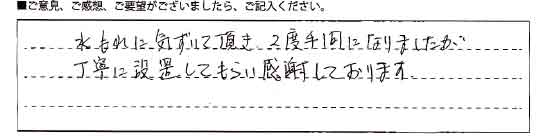 ■ご意見、ご感想、ご要望がございましたら、ご記入ください。
水もれに気ずいて頂き 2度手間になりましたが
丁寧に設置してもらい感謝しております